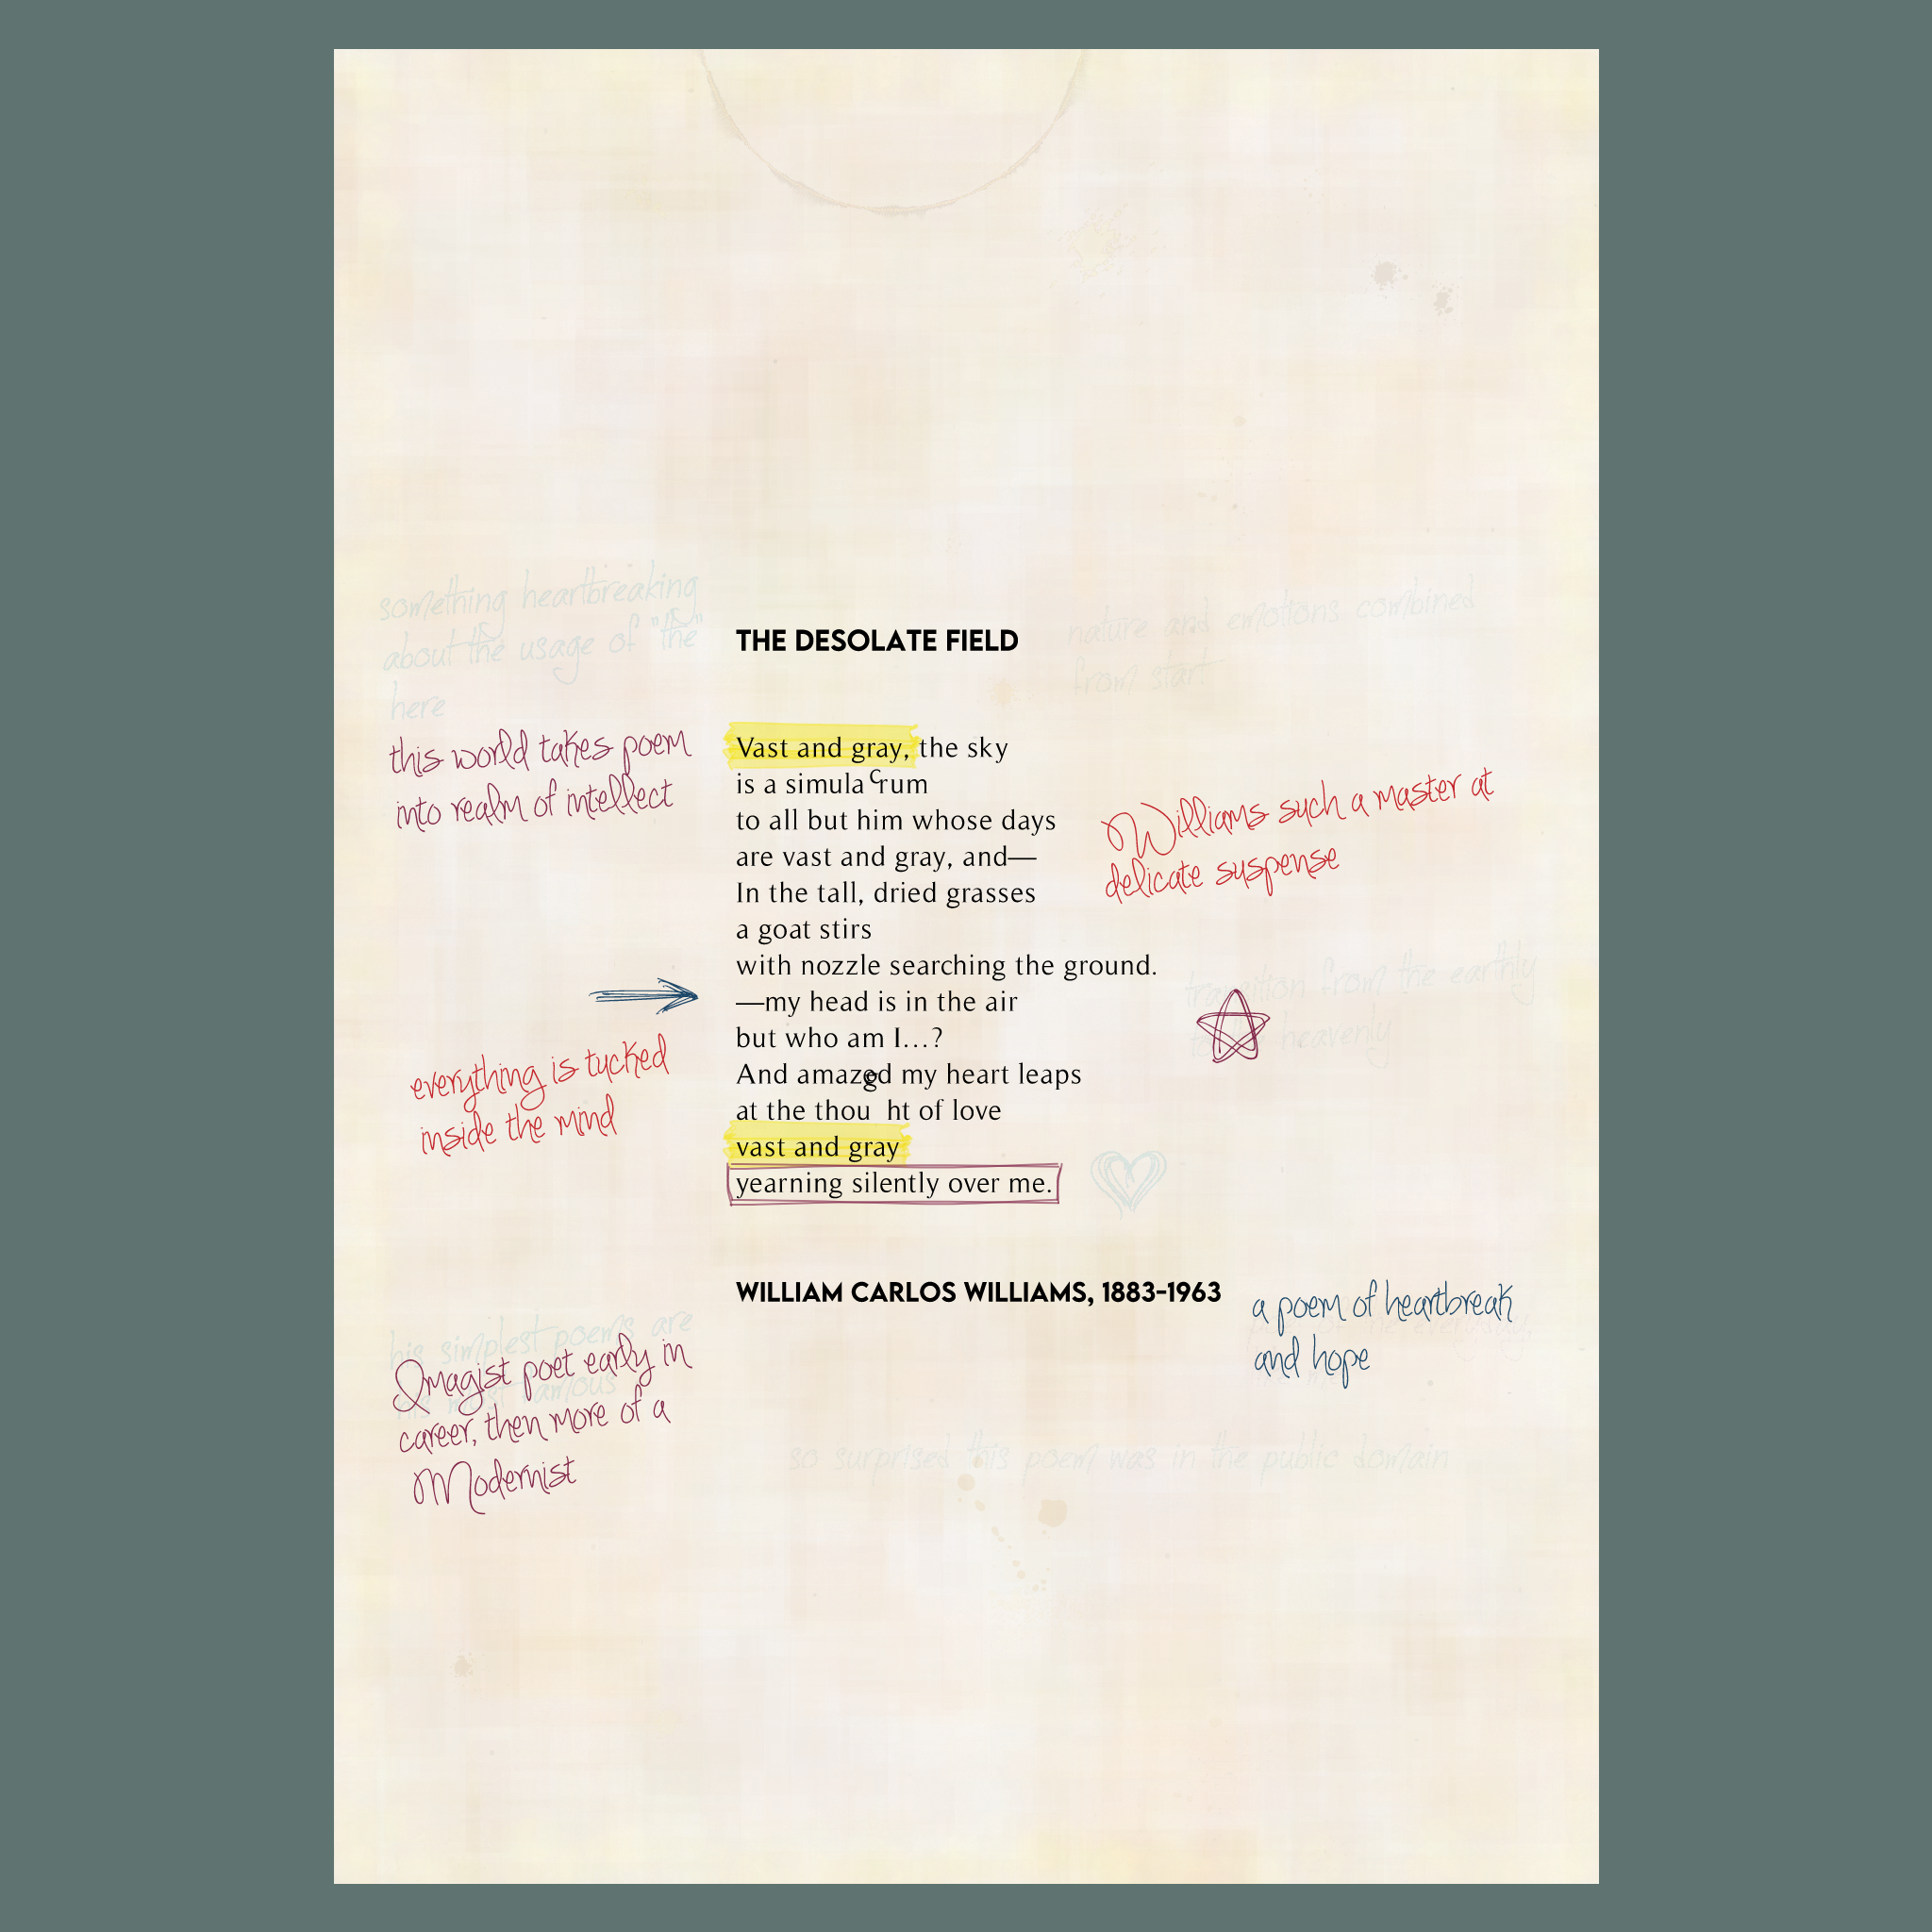 something heartbreaking
about the usage of "the"
here
THE DESOLATE FIELD
nature and emotions combined
from start
this world takes poem
into realm of intellect
Vast and gray, the sky
is a simulacrum
to all but him whose days
are vast and gray, and—
In the tall, dried grasses
a goat stirs
with nozzle searching the ground.
—my head is in the air
but who am I...?
And amazed my heart leaps
at the thought of love
vast and gray
yearning silently over me.
Williams such a master at
delicate suspense
transition from the earthly
to the heavenly
everything is tucked
inside the mind
WILLIAM CARLOS WILLIAMS, 1883-1963
a poem of heartbreak
and hope
his simplest poems are
his most famous
Imagist poet early in
career, then more of a
Modernist
so surprised this poem was in the public domain